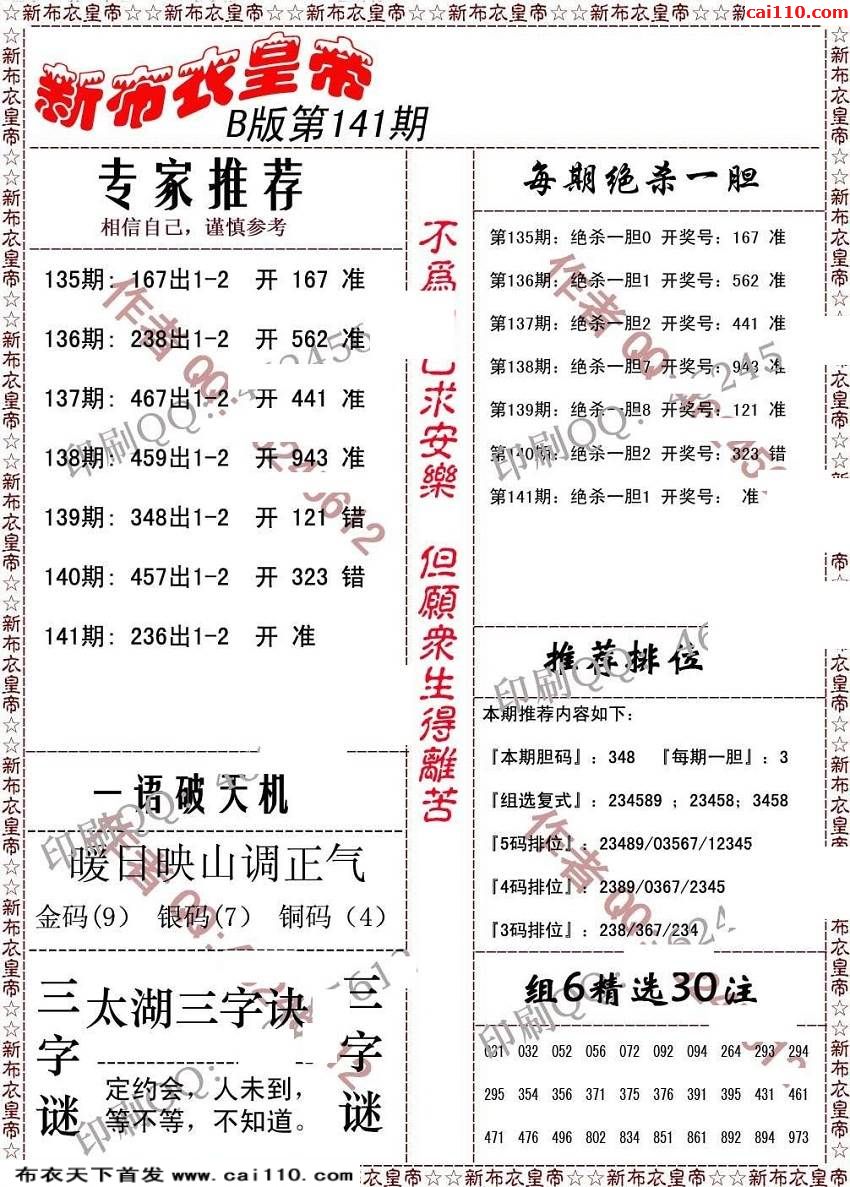 ☆新布衣皇帝☆☆新布衣皇帝☆☆新布衣皇帝☆☆新布衣皇帝☆☆新布衣皇帝☆☆新
cai110.com
新布衣皇帝
B版第141期
专家推荐
相信自己，谨慎参考
135期: 167出1-2 开 167 准
136期: 238出1-2 开 562 准
137期: 467出1-2 开 441 准
138期: 459出1-2 开 943 准
139期: 348出1-2 开 121 错
140期: 457出1-2 开 323 错
141期: 236出1-2 开 准
一语破天机
暖日映山调正气
金码(9) 银码(7) 铜码（4）
三字谜
太湖三字诀
三字谜
定约会，人未到，
等不等，不知道。
不爲
己求安樂
但願衆生得離苦
每期绝杀一胆
第135期: 绝杀一胆0 开奖号: 167 准
第136期: 绝杀一胆1 开奖号: 562 准
第137期: 绝杀一胆2 开奖号: 441 准
第138期: 绝杀一胆7 开奖号: 943 准
第139期: 绝杀一胆8 开奖号: 121 准
第140期: 绝杀一胆2 开奖号: 323 错
第141期: 绝杀一胆1 开奖号: 准
推荐排位
本期推荐内容如下:
『本期胆码』: 348 『每期一胆』: 3
『组选复式』: 234589 ; 23458; 3458
『5码排位』: 23489/03567/12345
『4码排位』: 2389/0367/2345
『3码排位』: 238/367/234
组6精选30注
031 032 052 056 072 092 094 264 293 294
295 354 356 371 375 376 391 395 431 461
471 476 496 802 834 851 861 892 894 973
布衣天下首发 www.cai110.com
衣皇帝☆☆新布衣皇帝☆☆新布衣皇帝☆☆新布衣皇帝☆